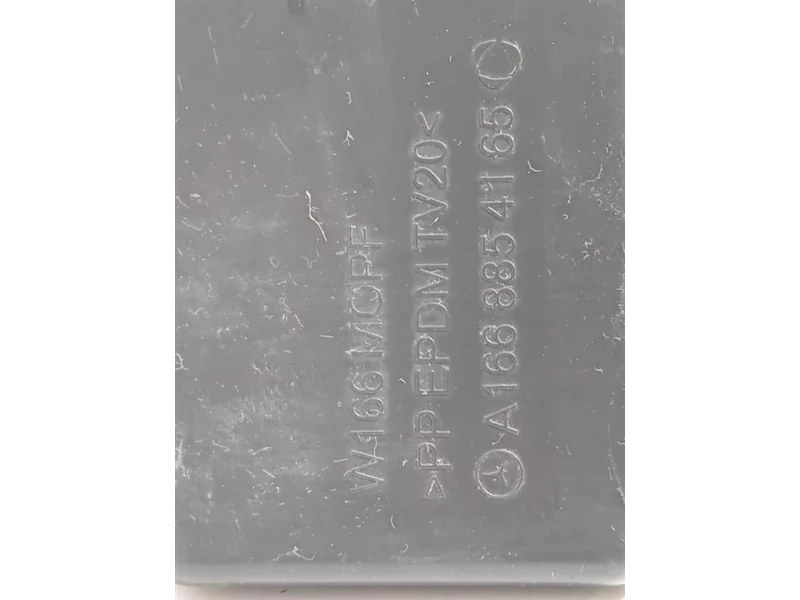 W166 MOPF
>PP EPDM TV20<
A 166 885 41 65